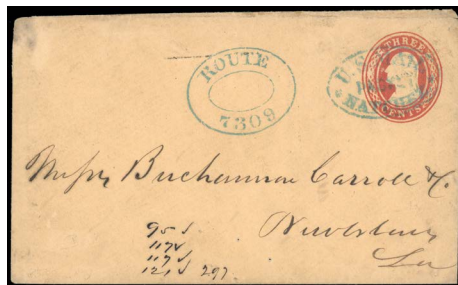 ROUTE
7309
THREE
CENTS
U.S.
Messrs Buchannan Carroll & C.
New Orleans
La
95
117
117
121 297.